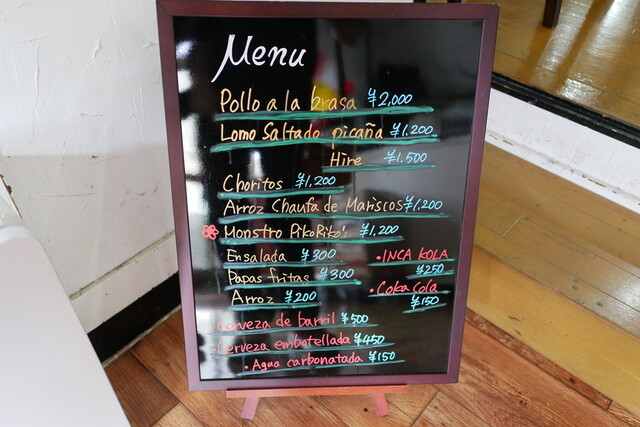 Menu
Pollo a la brasa ¥2,000
Lomo Saltado picaña ¥1.200
Hire ¥1.500
Choritos ¥1,200
Arroz Chaufa de Mariscos ¥1,200
Monstro PikoRiko's ¥1.200
Ensalada ¥300
Papas fritas ¥300
Arroz ¥200
・INCA KOLA
¥250
・Coka cola
¥150
・Cerveza de barril ¥500
・Cerveza embotellada ¥450
・Agua carbonatada ¥150